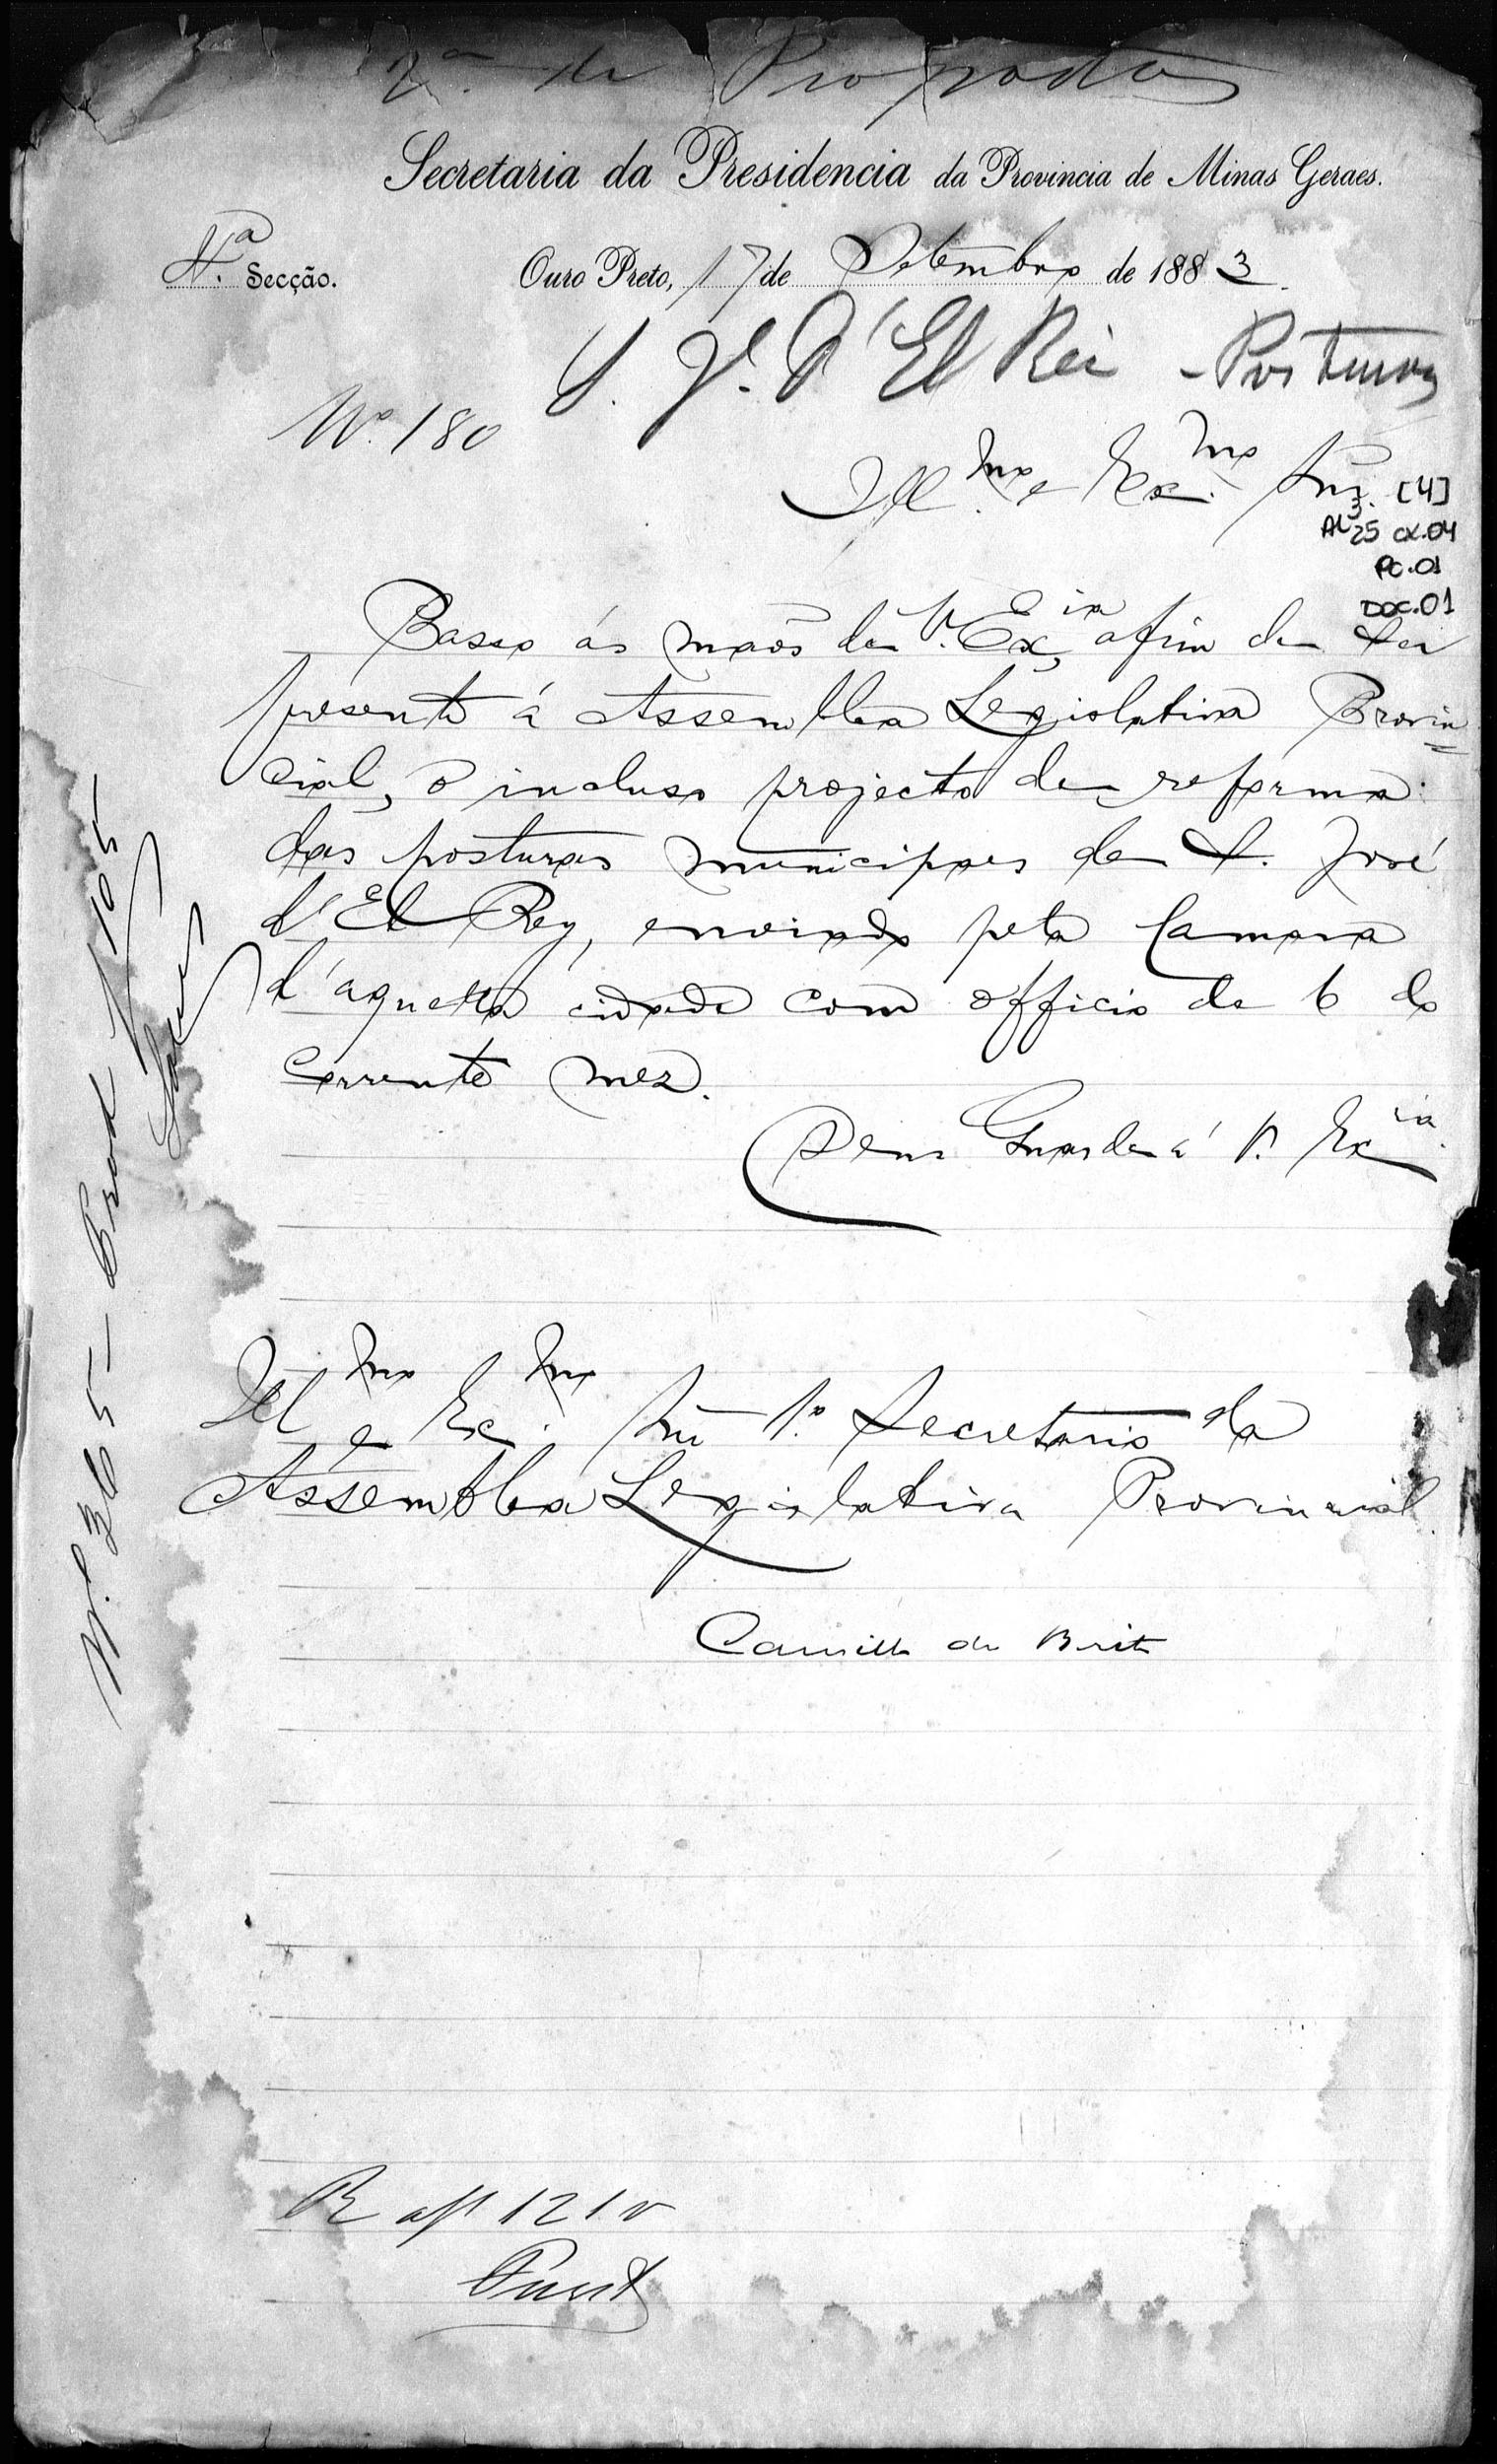 2ª de Propostas
Secretaria da Presidencia da Provincia de Minas Geraes.
4.ª Secção. Ouro Preto, 17 de Setembro de 1883.
S. J. d'El Rei - Posturas
Nº. 180
Illmo. e Exmo. Snr. [4]
AL 3. 25 CX.04
PC.01
DOC.01
Passo ás mãos de V. Excia, afim de ser
presente á Assemblea Legislativa Provin=
cial, o incluso projecto de reforma
das posturas municipaes de S. José
d'El Rey, enviado pela Camara
d'aquella cidade com officio de 6 do
corrente mez.
Deus Guarde á V. Excia.
Illmo e Exmo. Snr 1.º Secretario da
Assemblea Legislativa Provincial.
Camillo de Brito
Nº. 365 - 105
R af 121 v